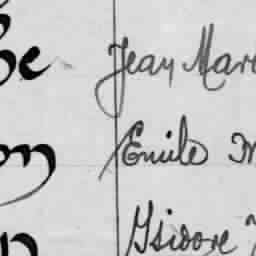 Jean Mar
Emile M
Isidore